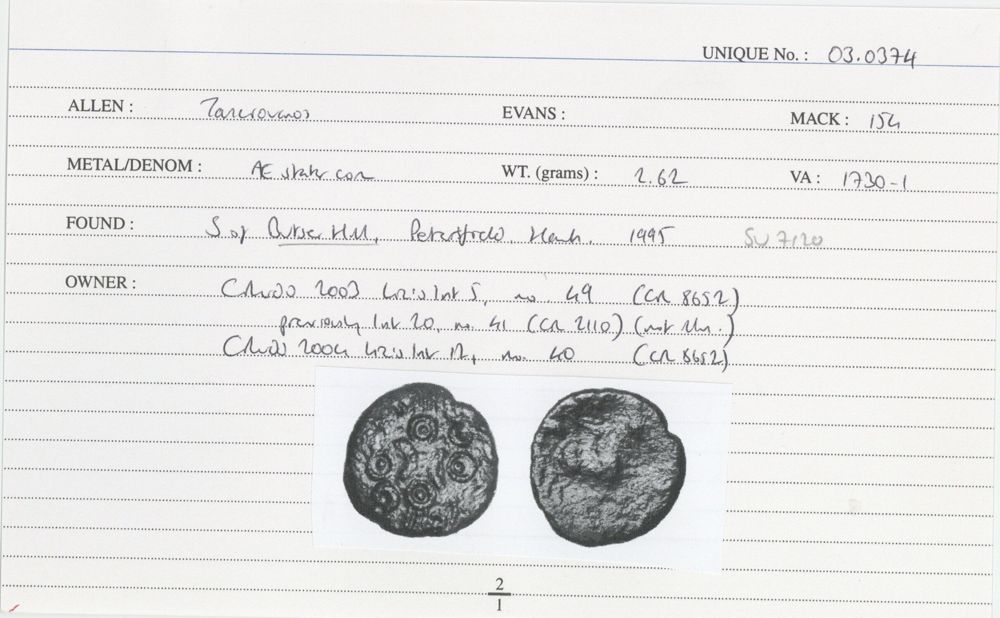 UNIQUE No. : 03.0374
ALLEN : Tasciovanos EVANS : MACK : 154
METAL/DENOM : Æ stater core WT. (grams) : 2.62 VA : 1730-1
FOUND : S of Butser Hill, Petersfield, Hants. 1995 SU 7120
OWNER : 2003 List 5, no. 49 (CR 8652)
previously list 20, no. 41 (CR 2110) (not illus.)
2004 no. 40 (CR 8652)
2
1